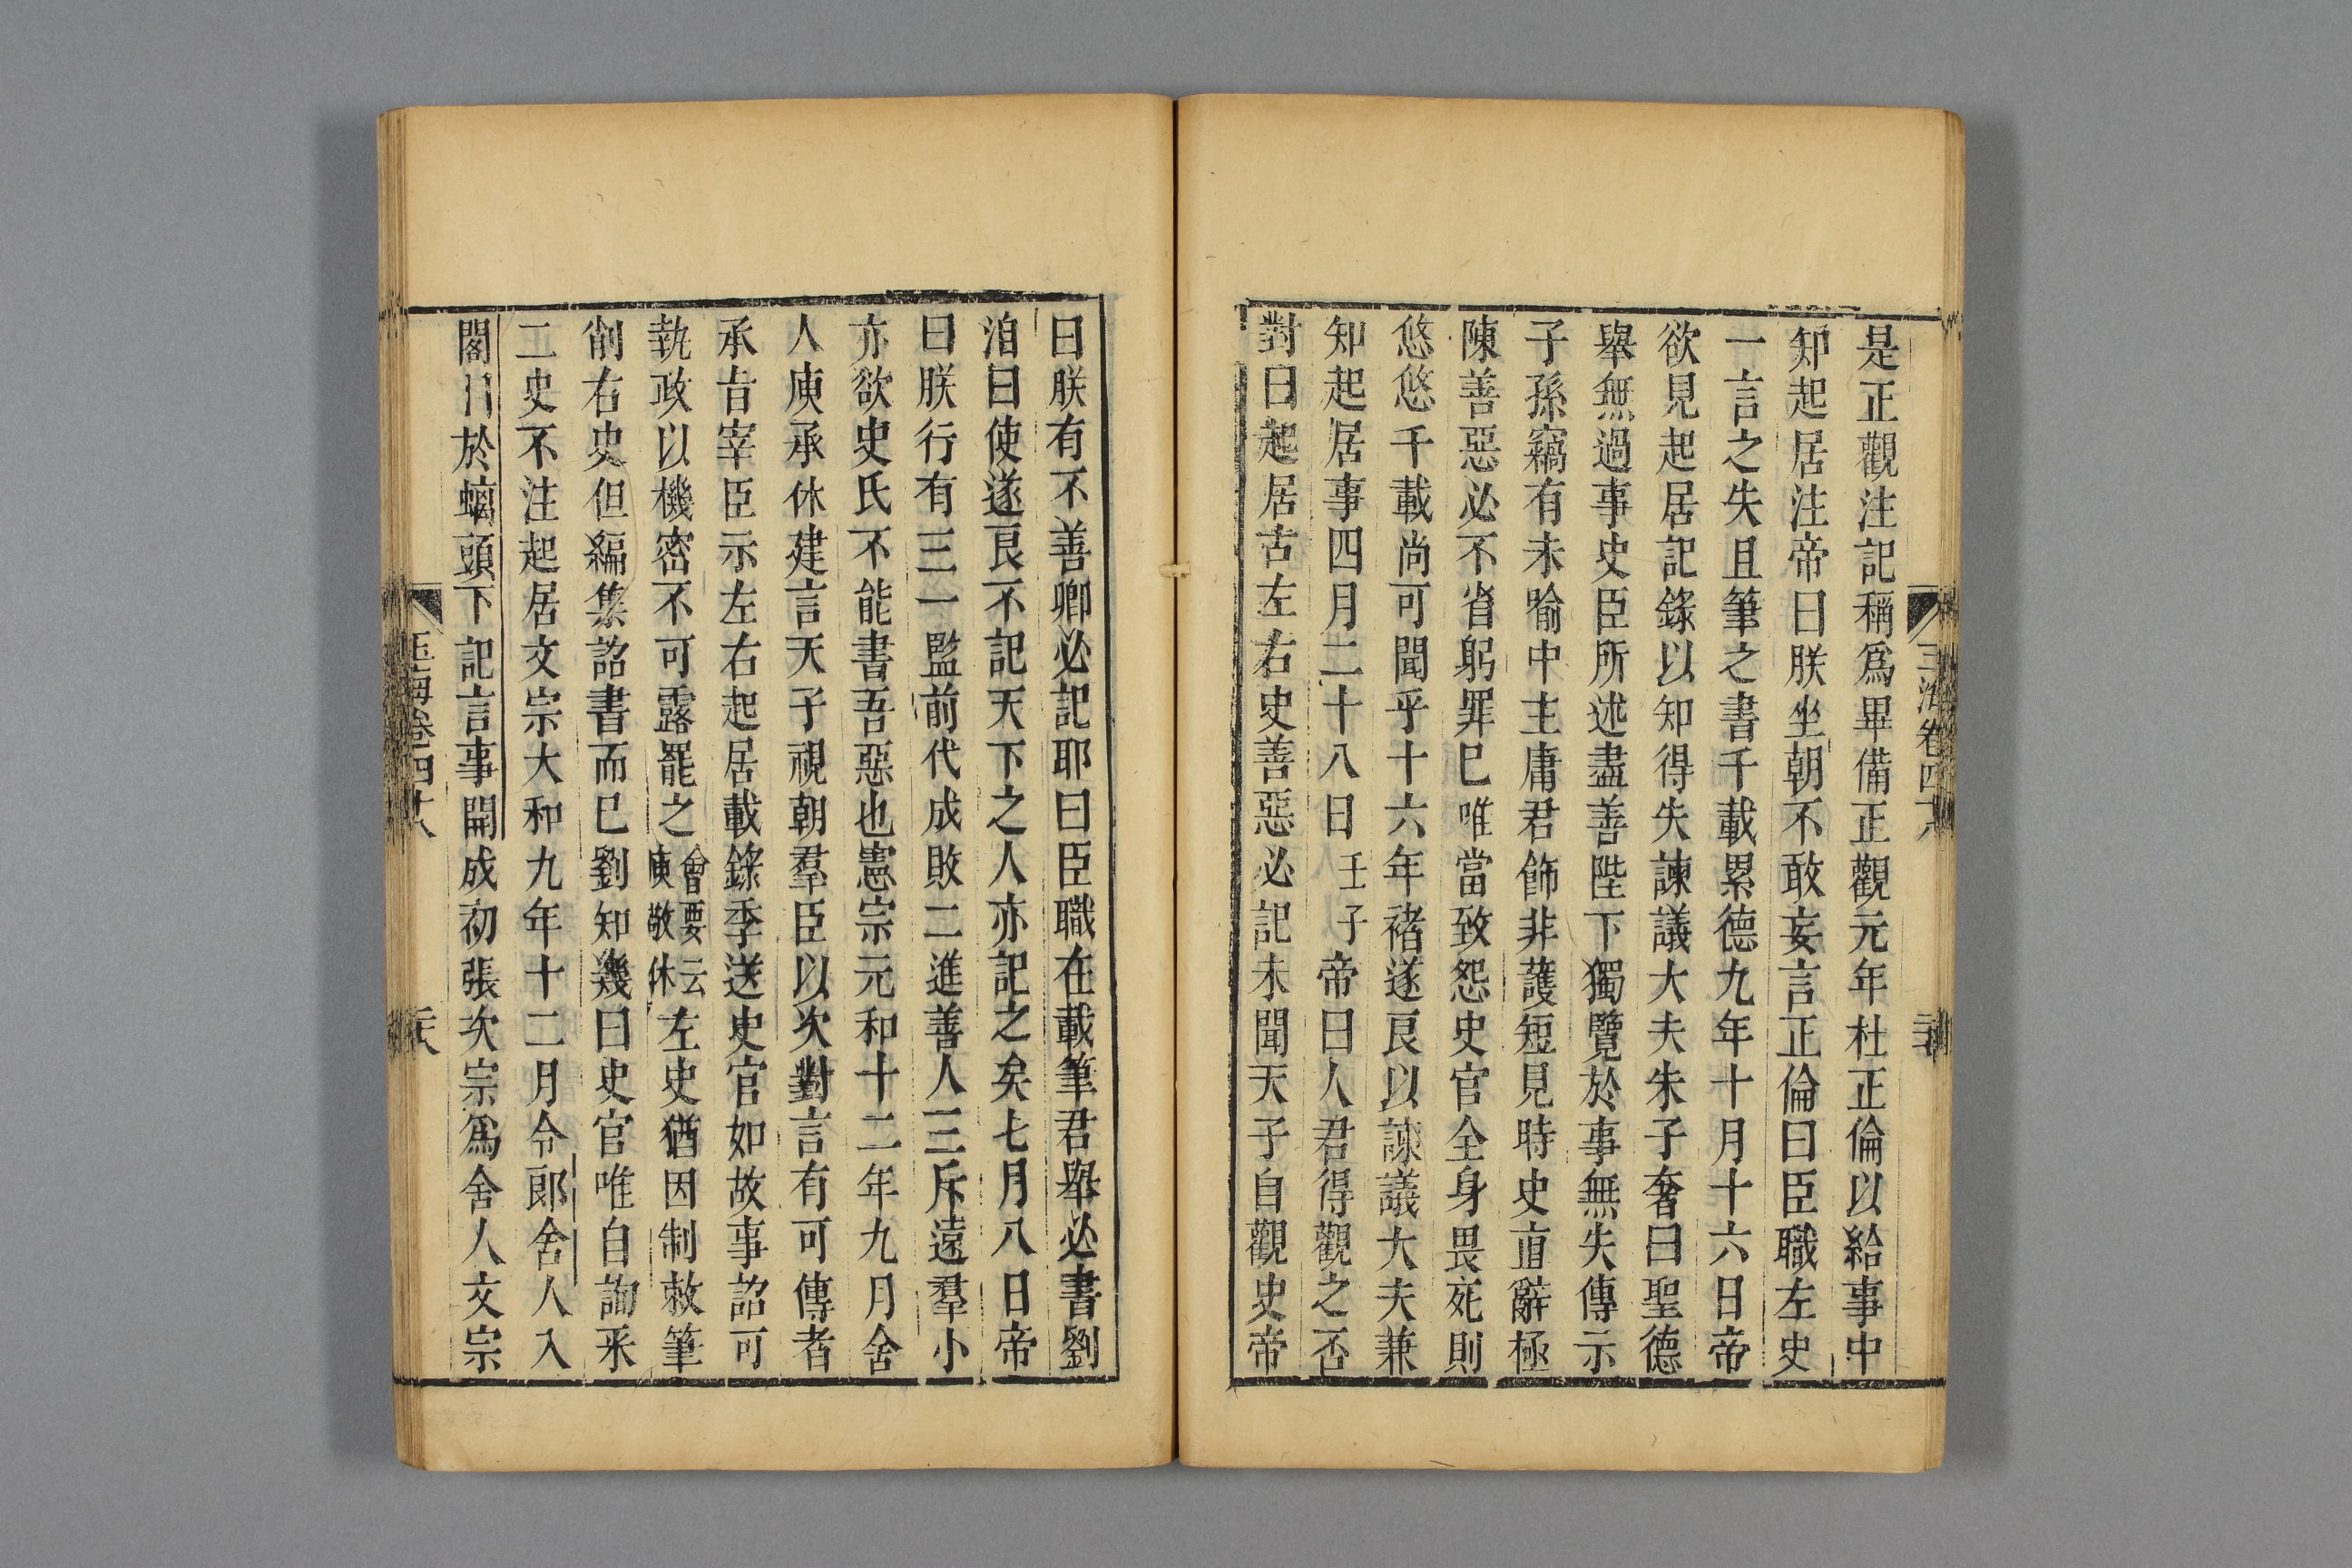 是正觀注記稱爲畢備正觀元年杜正倫以給事中
知起居注帝曰朕坐朝不敢妄言正倫曰臣職左史
一言之失且筆之書千載累德九年十月十六日帝
欲見起居記錄以知得失諫議大夫朱子奢曰聖德
舉無過事史臣所述盡善陛下獨覽於事無失傳示
子孫竊有未喻中主庸君飾非護短見時史直辭極
陳善惡必不省躬罪巳唯當致怨史官全身畏死則
悠悠千載尚可聞乎十六年褚遂良以諫議大夫兼
知起居事四月二十八日壬子帝曰人君得觀之否
對曰起居古左右史善惡必記未聞天子自觀史帝
曰朕有不善卿必記耶曰臣職在載筆君舉必書劉
洎曰使遂良不記天下之人亦記之矣七月八日帝
曰朕行有三一監前代成敗二進善人三斥遠羣小
亦欲史氏不能書吾惡也憲宗元和十二年九月舍
人庾承休建言天子視朝羣臣以次對言有可傳者
承旨宰臣示左右起居載錄季送史官如故事詔可
執政以機密不可露罷之會要云庾敬休左史猶因制敕筆
削右史但編集詔書而巳劉知幾曰史官唯自詢采
二史不注起居文宗大和九年十二月令郎舍人入
閣日於螭頭下記言事開成初張次宗爲舍人文宗
玉海卷四十八